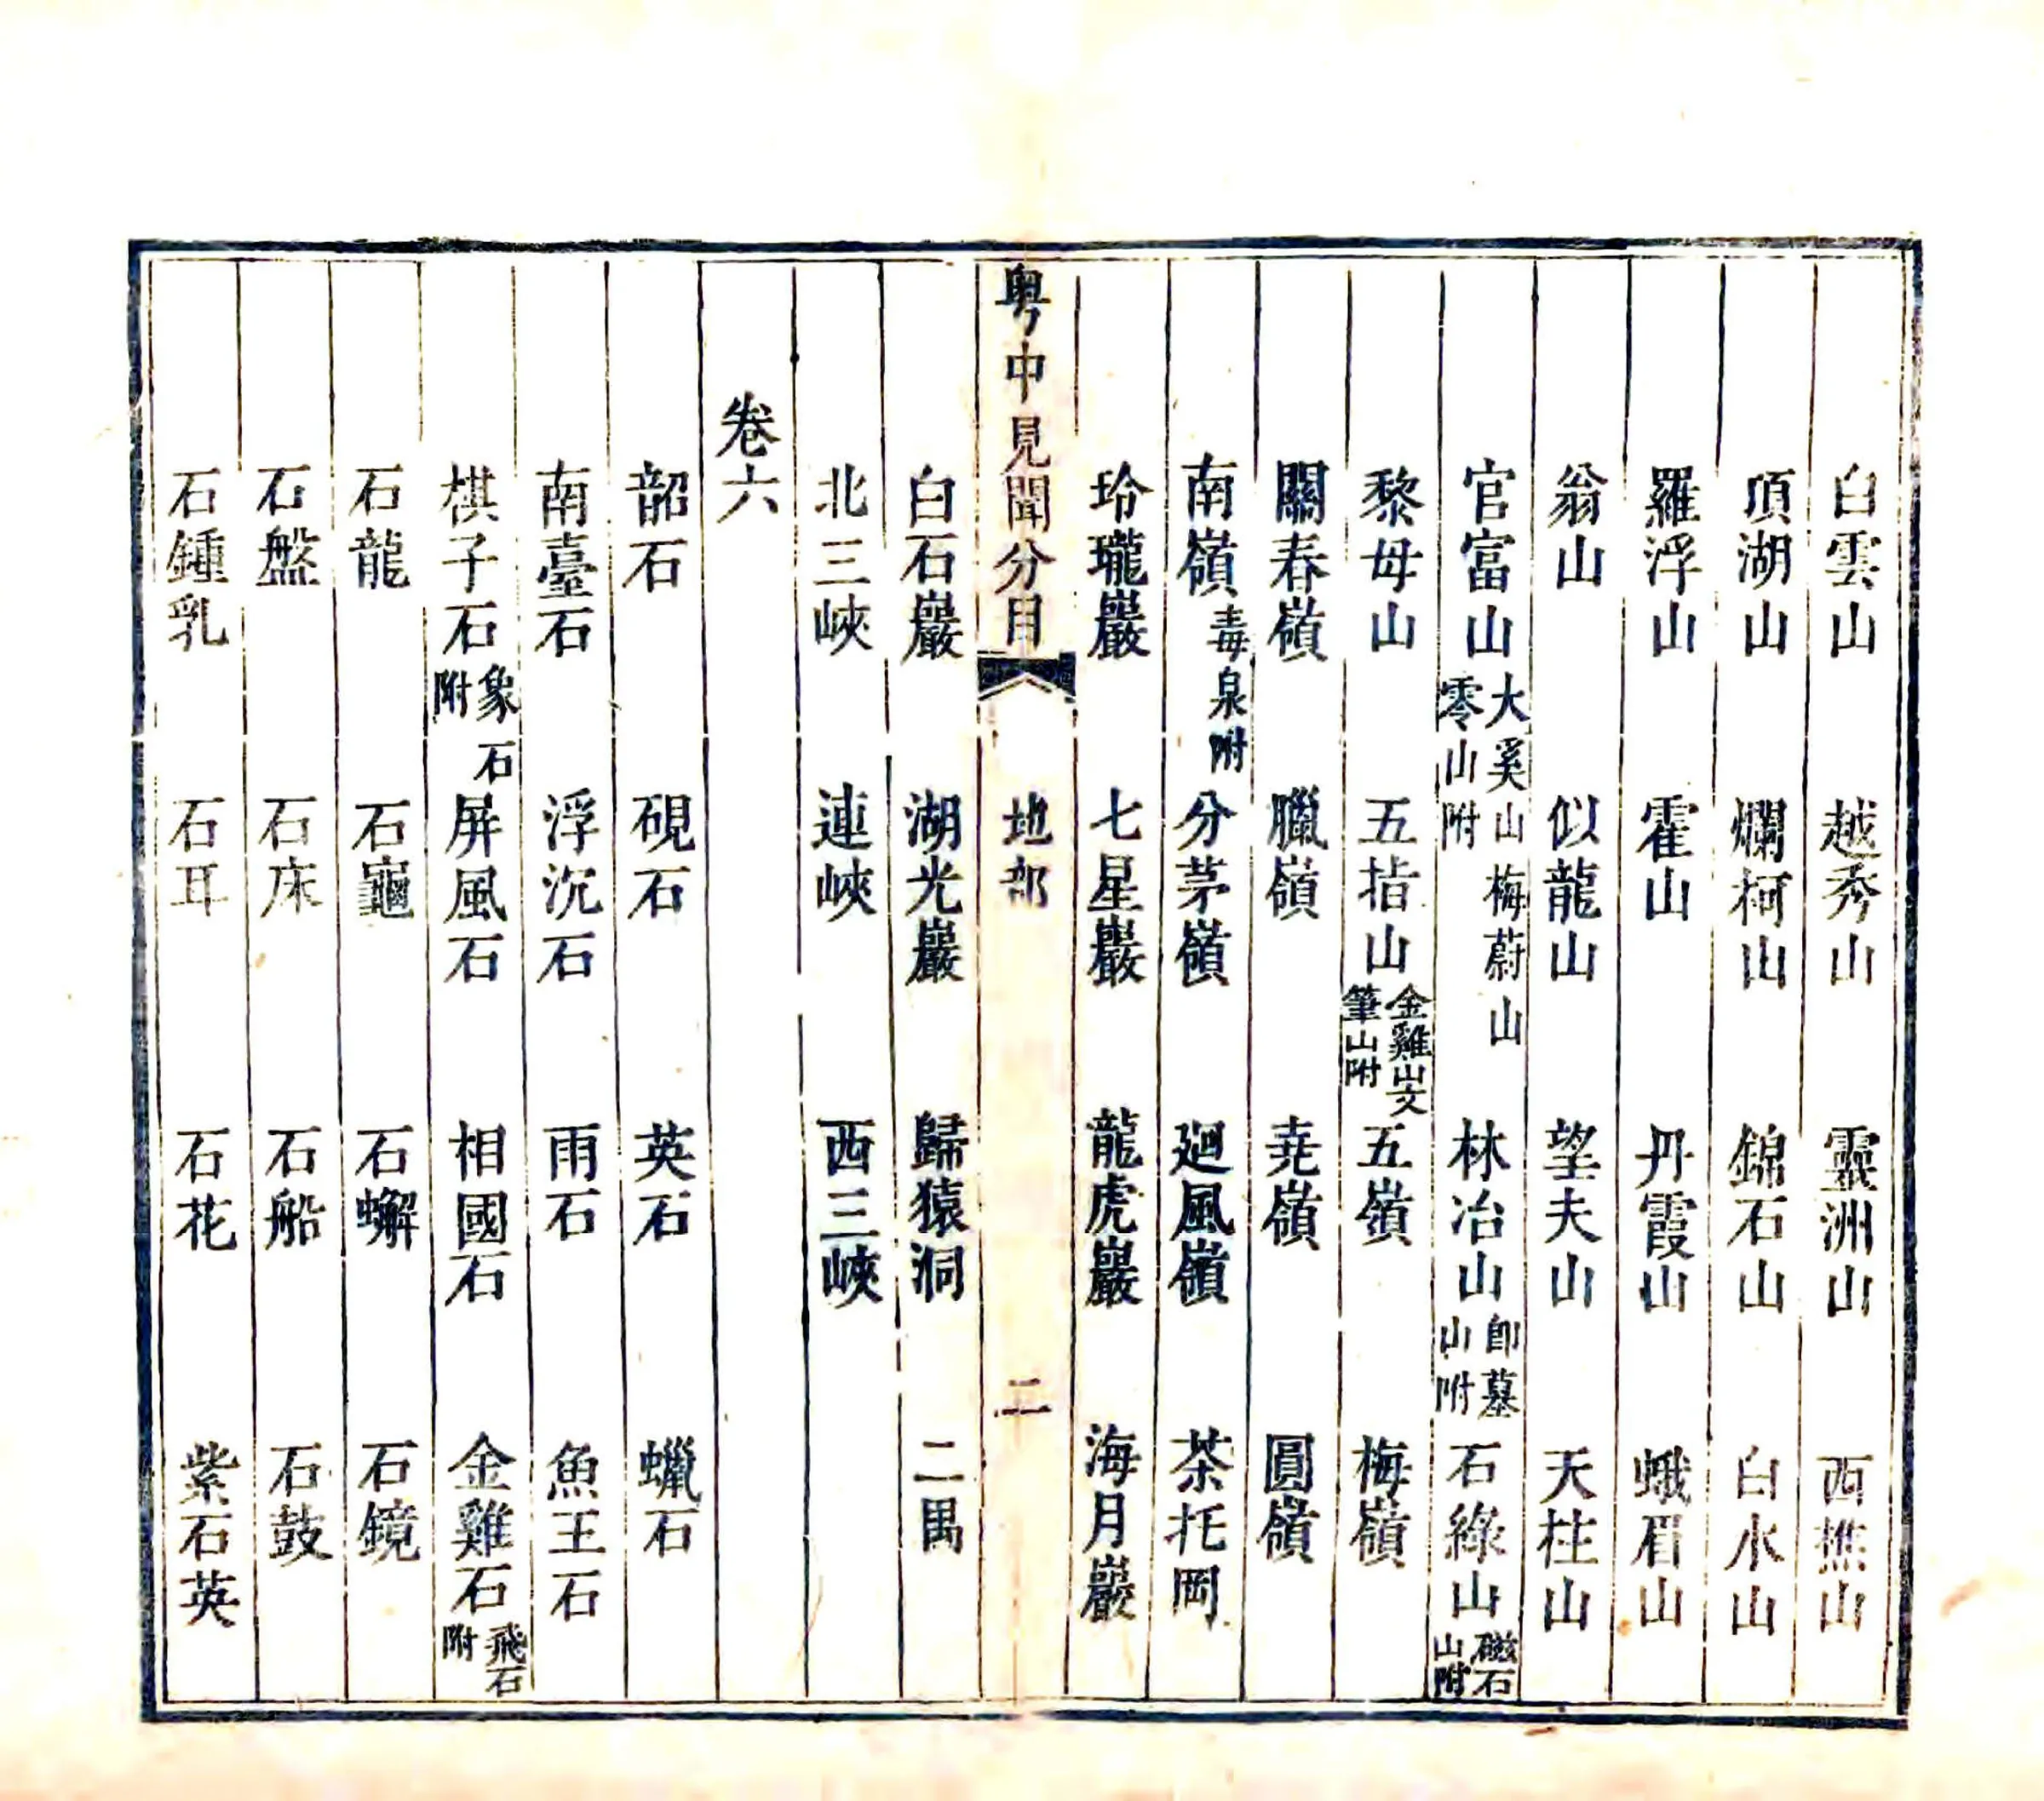 白雲山　越秀山　靈洲山　西樵山
頂湖山　爛柯山　錦石山　白水山
羅浮山　霍山　丹霞山　蛾眉山
翁山　似龍山　望夫山　天柱山
官富山大奚山梅蔚山零山附　林冶山卽墓山附　石綠山磁石山附
黎母山　五指山金雞山文筆山附　五嶺　梅嶺
關春嶺　臘嶺　尭嶺　圓嶺
南嶺毒泉附　分茅嶺　廻風嶺　茶托岡
玲瓏巖　七星巖　龍虎巖　海月巖
粤中見聞分目　地部　二
白石巖　湖光巖　歸猿洞　二禺
北三峽　連峽　西三峽
卷六
韶石　硯石　英石　蠟石
南臺石　浮沉石　雨石　魚王石
棋子石象石附　屏風石　相國石　金雞石飛石附
石龍　石龜　石蠏　石鏡
石盤　石床　石船　石鼓
石鍾乳　石耳　石花　紫石英